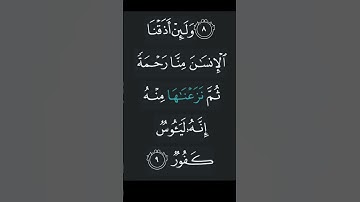 ٨ وَلَئِنْ أَذَقْنَا
ٱلْإِنسَٰنَ مِنَّا رَحْمَةً
ثُمَّ نَزَعْنَٰهَا مِنْهُ
إِنَّهُۥ لَيَـُٔوسٌ
كَفُورٌ ٩